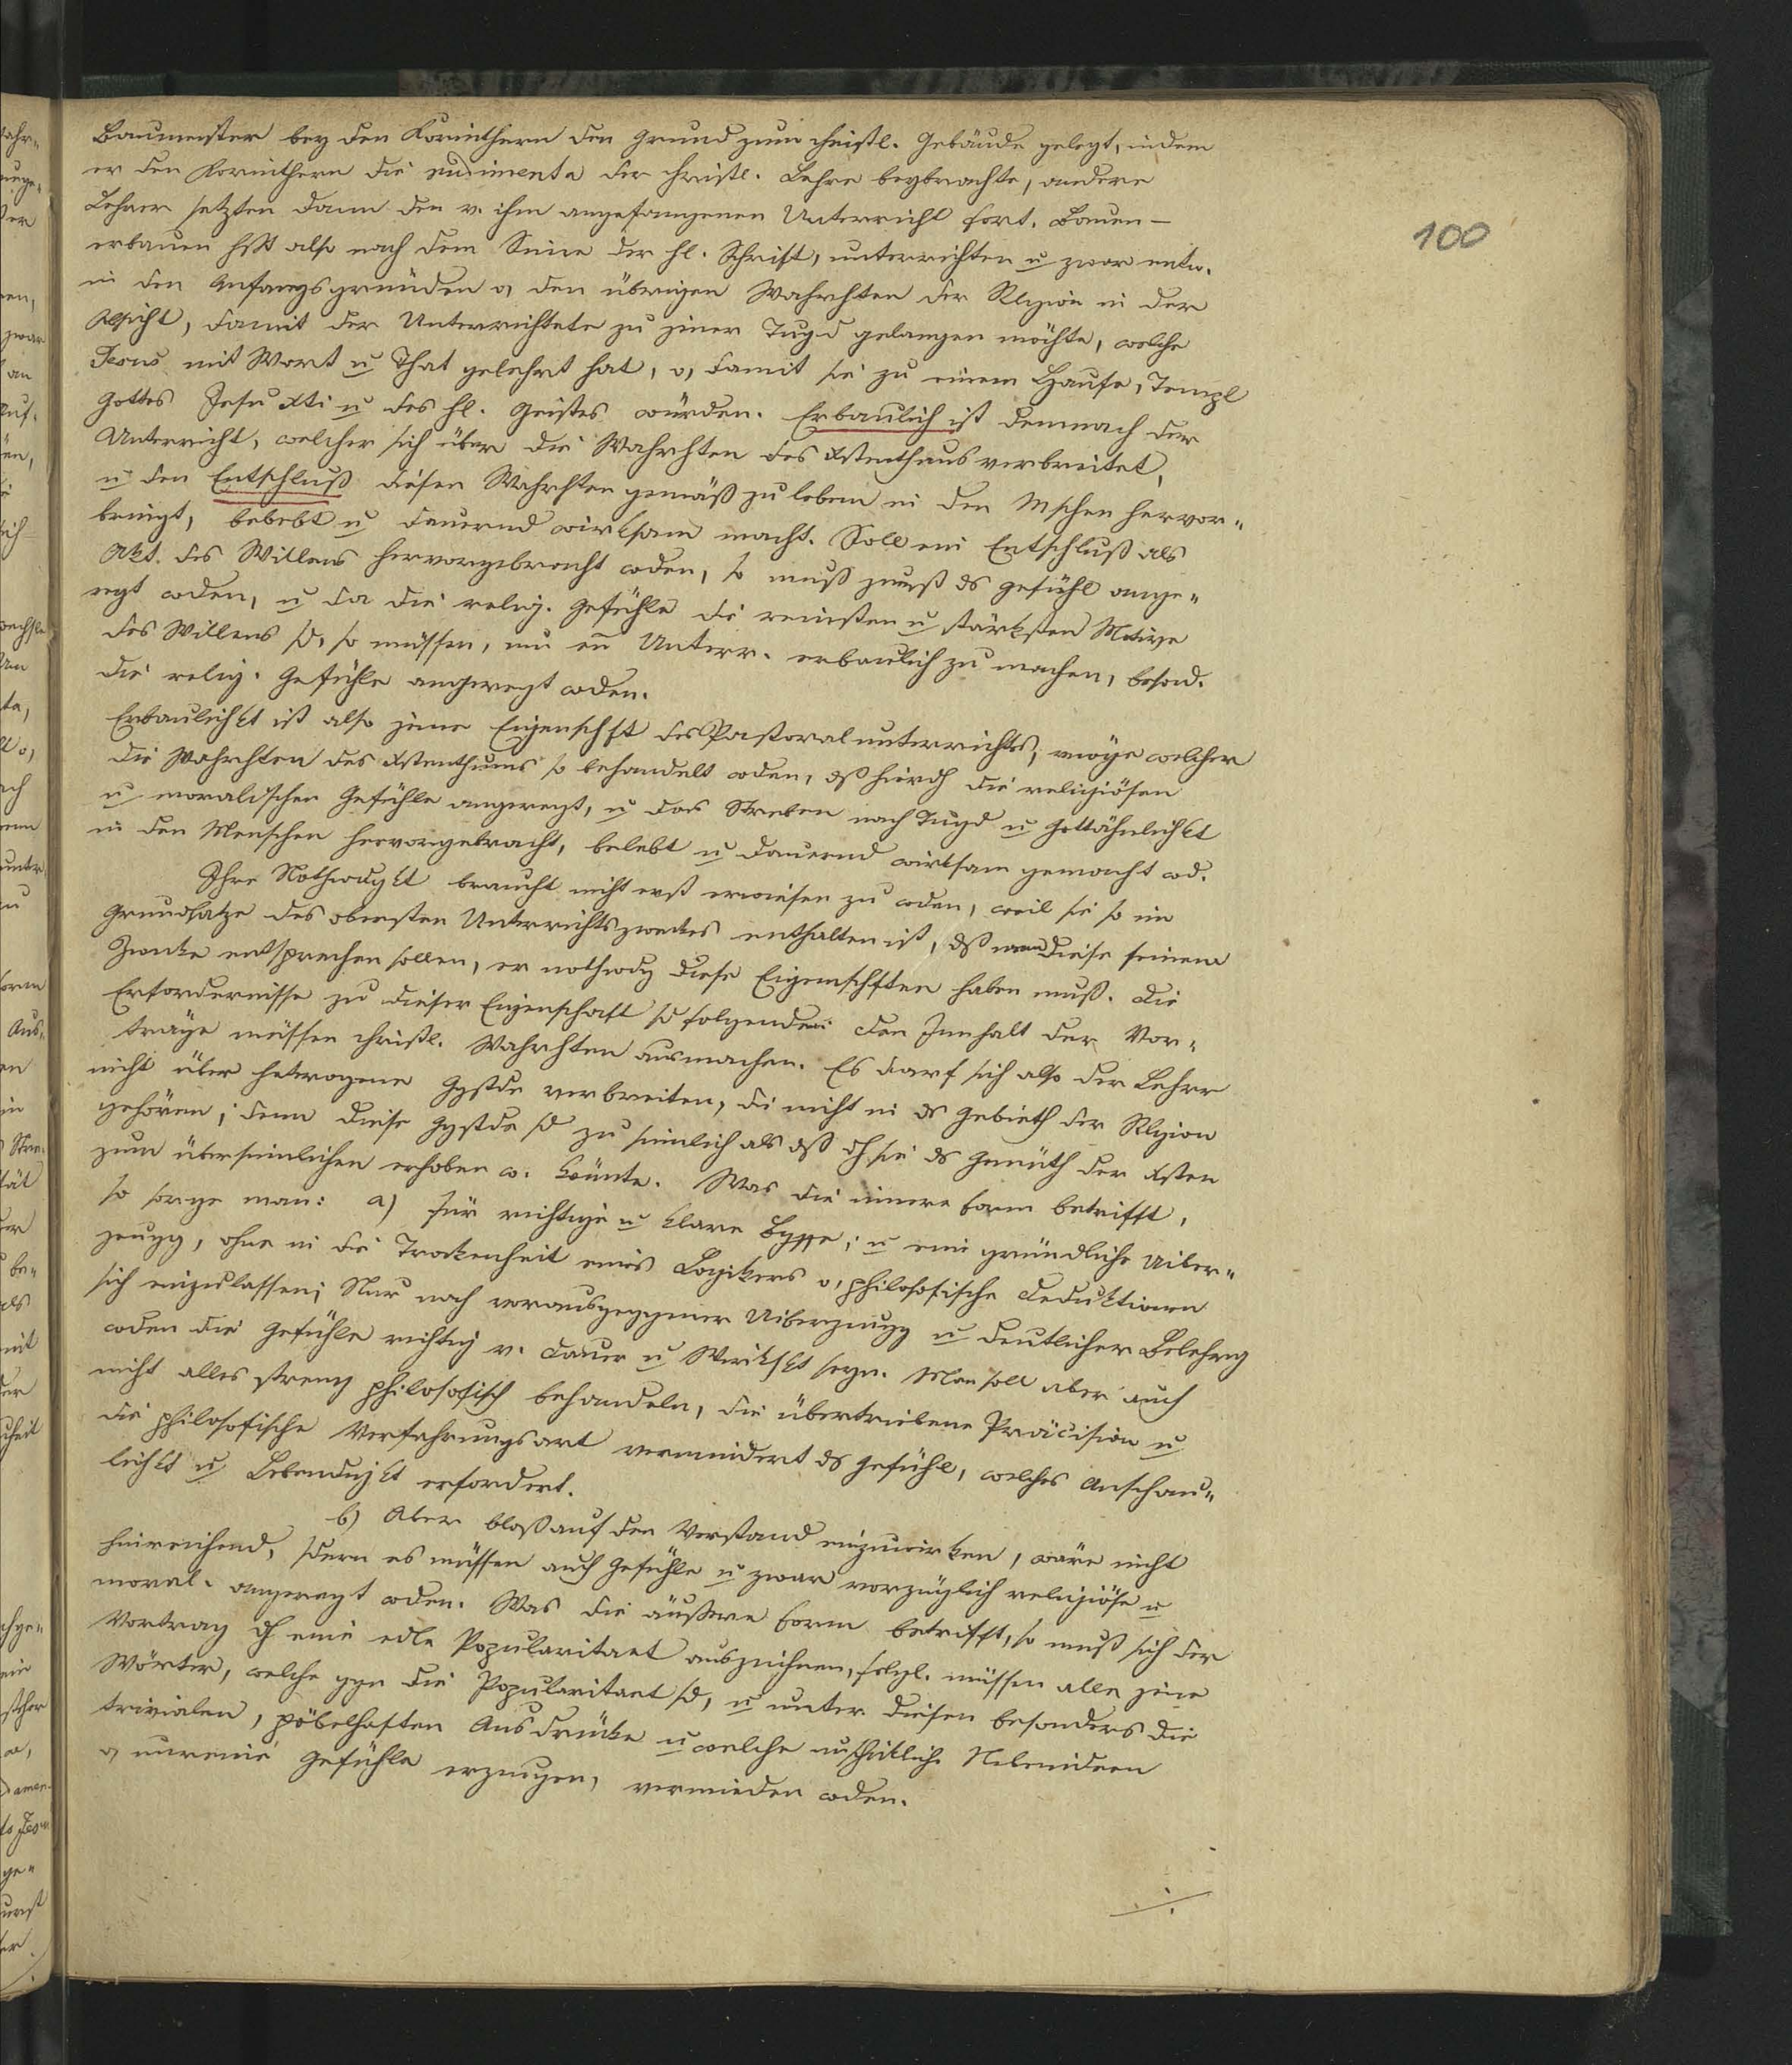 100
Baumeister bey den Korinthern den Grund zum christl. Gebäude gelegt, indem
er den Korinthern die rudimenta der christl. Lehre beybrachte, andere
Lehrer setzten dann den v. ihm angefangenen Unterricht fort. Bauen –
erbauen hßt also nach dem Sinne der hl. Schrift, unterrichten u zwar entw.
in den Anfangsgründen o, den übrigen Wahrhten der Rlgion in der
Absicht, damit der Unterrichtete zu jener Tugd gelangen möchte, welche
Jesus mit Wort u That gelehrt hat, o, damit sie zu einem Hause, Templ
Gottes Jesu Xti u des hl. Geistes würden. Erbaulich ist demnach der
Unterricht, welcher sich über die Wahrhten des Xstenthums verbreitet,
u den Entschluß diesen Wahrhten gemäß zu leben in den Mschen hervor-
bringt, belebt u dauernd wirksam macht. Soll ein Entschluß als
Akt. des Willens hervorgebracht wden, so muß zuerst ds Gefühl ange-
regt wden, u da die relig. Gefühle die reinsten u stärksten Motive
des Willens sd, so müssen, um en Unterr. erbaulich zu machen, besond.
die relig. Gefühle angeregt wden.
Erbaulichkt ist also jene Eigenschft des Pastoralunterrichts, vmöge welcher
die Wahrhten des Xstenthums so behandelt wden, dß hierdch die religiösen
u moralischen Gefühle angeregt, u das Streben nach Tugd u Gottähnlichkt
in den Menschen hervorgebracht, belebt u dauernd wirksam gemacht wd.
Ihre Nothwdgkt braucht nicht erst erwiesen zu wden, weil sie so im
Grundsatze des obersten Unterrichtszweckes enthalten ist, dß wenn diese seinem
Zwecke entsprechen sollen, er nothwdg diese Eigenschften haben muß. Die
Erfordernisse zu dieser Eigenschaft sd folgende: den Innhalt der Vor-
träge müssen christl. Wahrhten ausmachen. Es darf sich also der Lehrer
nicht über heterogene Ggstde verbreiten, die nicht in ds Gebieth der Rlgion
gehören; denn diese Ggstde sd zu sinnlich als dß dch sie ds Gemüth der Xsten
zum übersinnlichen erhoben w. könnte. Was die innere Form betrifft,
so sorge man: a) für richtige u klare Bgffe; u eine gründliche Uiber-
zeugg, ohne in die Trockenheit eines Logikers o, philosofische Deduktionen
sich einzulassen; Nur nach vorausgeggener Uiberzeugg u deutlicher Belehrg
wden die Gefühle richtig v. Dauer u Wirkskt seyn. Man soll aber auch
nicht alles streng philosofisch behandeln, die übertriebene Präcision u
die philosofische Verfahrungsart vermindert ds Gefühl, welches Anschau-
lichkt u Lebendigkt erfordert.
b) Aber bloß auf den Verstand einzuwirken, wäre nicht
hinreichend, sdern es müssen auch Gefühle u zwar vorzüglich religiöse u
moral. angeregt wden. Was die äußere Form betrifft, so muß sich der
Vortrag dch eine edle Popularitaet auszeichnen, folgl. müssen alle jene
Wörter, welche ggn die Popularitaet sd, u unter diesen besonders die
trivialen, pöbelhaften Ausdrücke u welche unschickliche Nebenideen
o, unreine Gefühle erzeugen, vermieden wden.